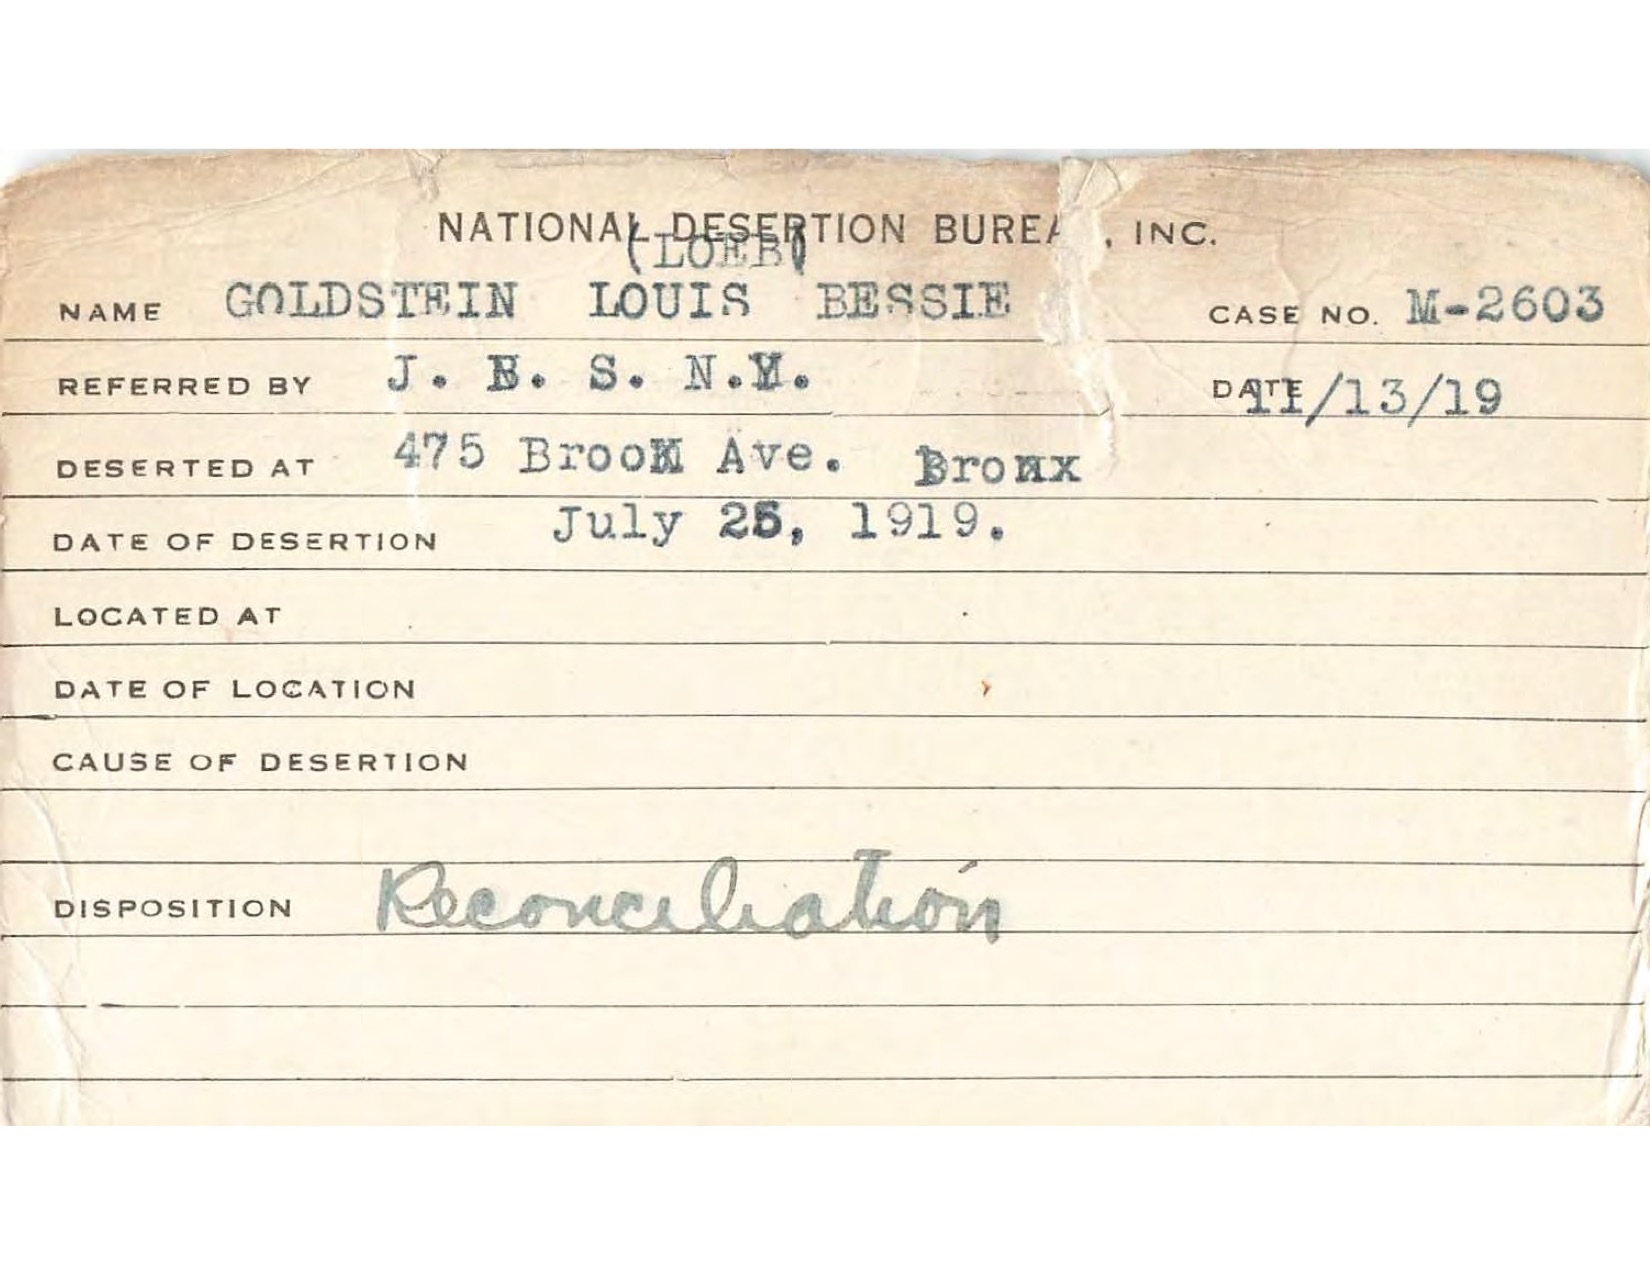 NATIONAL DESERTION BUREA , INC.
(LOEB)
NAME GOLDSTEIN LOUIS BESSIE CASE NO. M-2603
REFERRED BY J. E. S. N.Y. DATE 11/13/19
DESERTED AT 475 Brook Ave. Bronx
DATE OF DESERTION July 25, 1919.
LOCATED AT
DATE OF LOCATION
CAUSE OF DESERTION
DISPOSITION Reconciliation